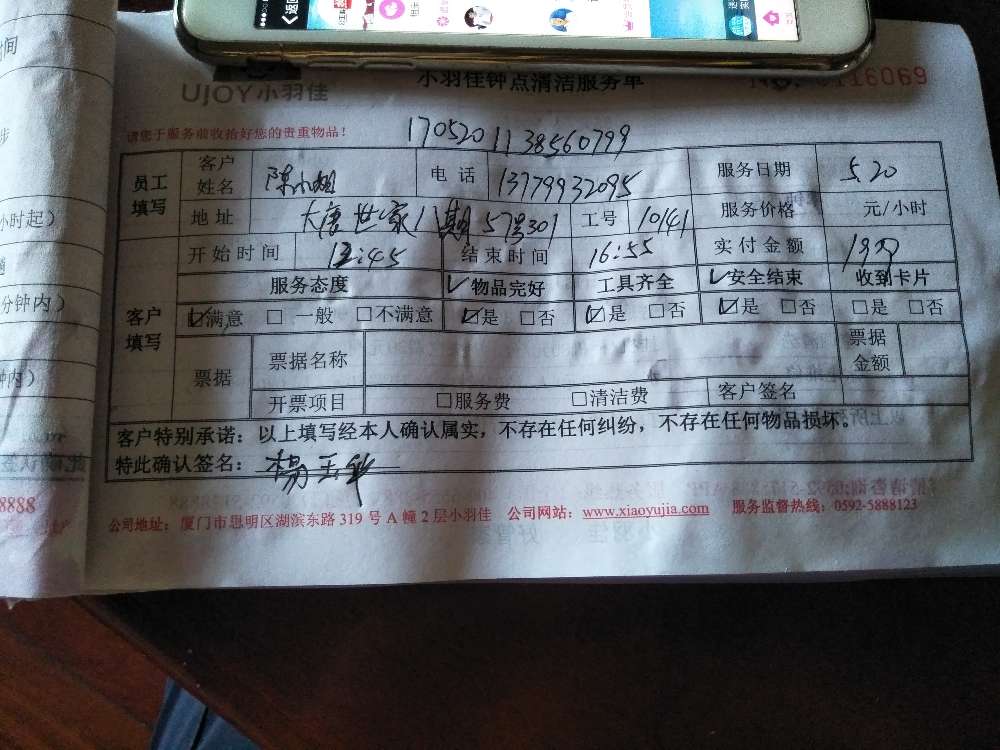 小羽佳钟点清洁服务单
16069
UJOY小羽佳
请您于服务前收拾好您的贵重物品！
1705201138560799
员工填写 客户姓名 陈小姐 电话 13779932095 服务日期 5.20
地址 大唐世家八期57号301 工号 10141 服务价格 元/小时
开始时间 12:45 结束时间 16:55 实付金额
服务态度 ✓物品完好 工具齐全 ✓安全结束 收到卡片
客户填写 ☑满意 □一般 □不满意 ☑是 □否 ☑是 □否 ☑是 □否 □是 □否
票据 票据名称 票据金额
开票项目 □服务费 □清洁费 客户签名
客户特别承诺：以上填写经本人确认属实，不存在任何纠纷，不存在任何物品损坏。
特此确认签名：杨玉华
公司地址：厦门市思明区湖滨东路 319 号 A 幢 2 层小羽佳 公司网站：www.xiaoyujia.com 服务监督热线：0592-5888123
小时起）
分钟内）
钟内）
8888